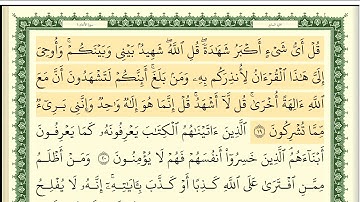 قُلْ أَيُّ شَيْءٍ أَكْبَرُ شَهَٰدَةً ۖ قُلِ ٱللَّهُ ۖ شَهِيدٌۢ بَيْنِى وَبَيْنَكُمْ ۚ وَأُوحِىَ
إِلَىَّ هَٰذَا ٱلْقُرْءَانُ لِأُنذِرَكُم بِهِۦ وَمَنۢ بَلَغَ ۚ أَئِنَّكُمْ لَتَشْهَدُونَ أَنَّ مَعَ
ٱللَّهِ ءَالِهَةً أُخْرَىٰ ۚ قُل لَّآ أَشْهَدُ ۚ قُلْ إِنَّمَا هُوَ إِلَٰهٌ وَٰحِدٌ وَإِنَّنِى بَرِىٓءٌ
مِّمَّا تُشْرِكُونَ ١٩ ٱلَّذِينَ ءَاتَيْنَٰهُمُ ٱلْكِتَٰبَ يَعْرِفُونَهُۥ كَمَا يَعْرِفُونَ
أَبْنَآءَهُمُ ۘ ٱلَّذِينَ خَسِرُوٓا۟ أَنفُسَهُمْ فَهُمْ لَا يُؤْمِنُونَ ٢٠ وَمَنْ أَظْلَمُ
مِمَّنِ ٱفْتَرَىٰ عَلَى ٱللَّهِ كَذِبًا أَوْ كَذَّبَ بِـَٔايَٰتِهِۦٓ ۗ إِنَّهُۥ لَا يُفْلِحُ